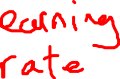 earning
rate